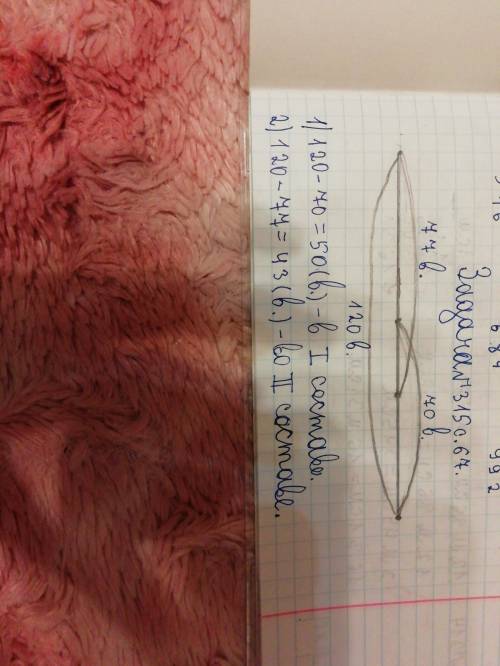 Задача №315 с.67.
77 в. 70 в.
120 в.
1) 120 - 70 = 50 (в.) - в I составе.
2) 120 - 77 = 43 (в.) - во II составе.